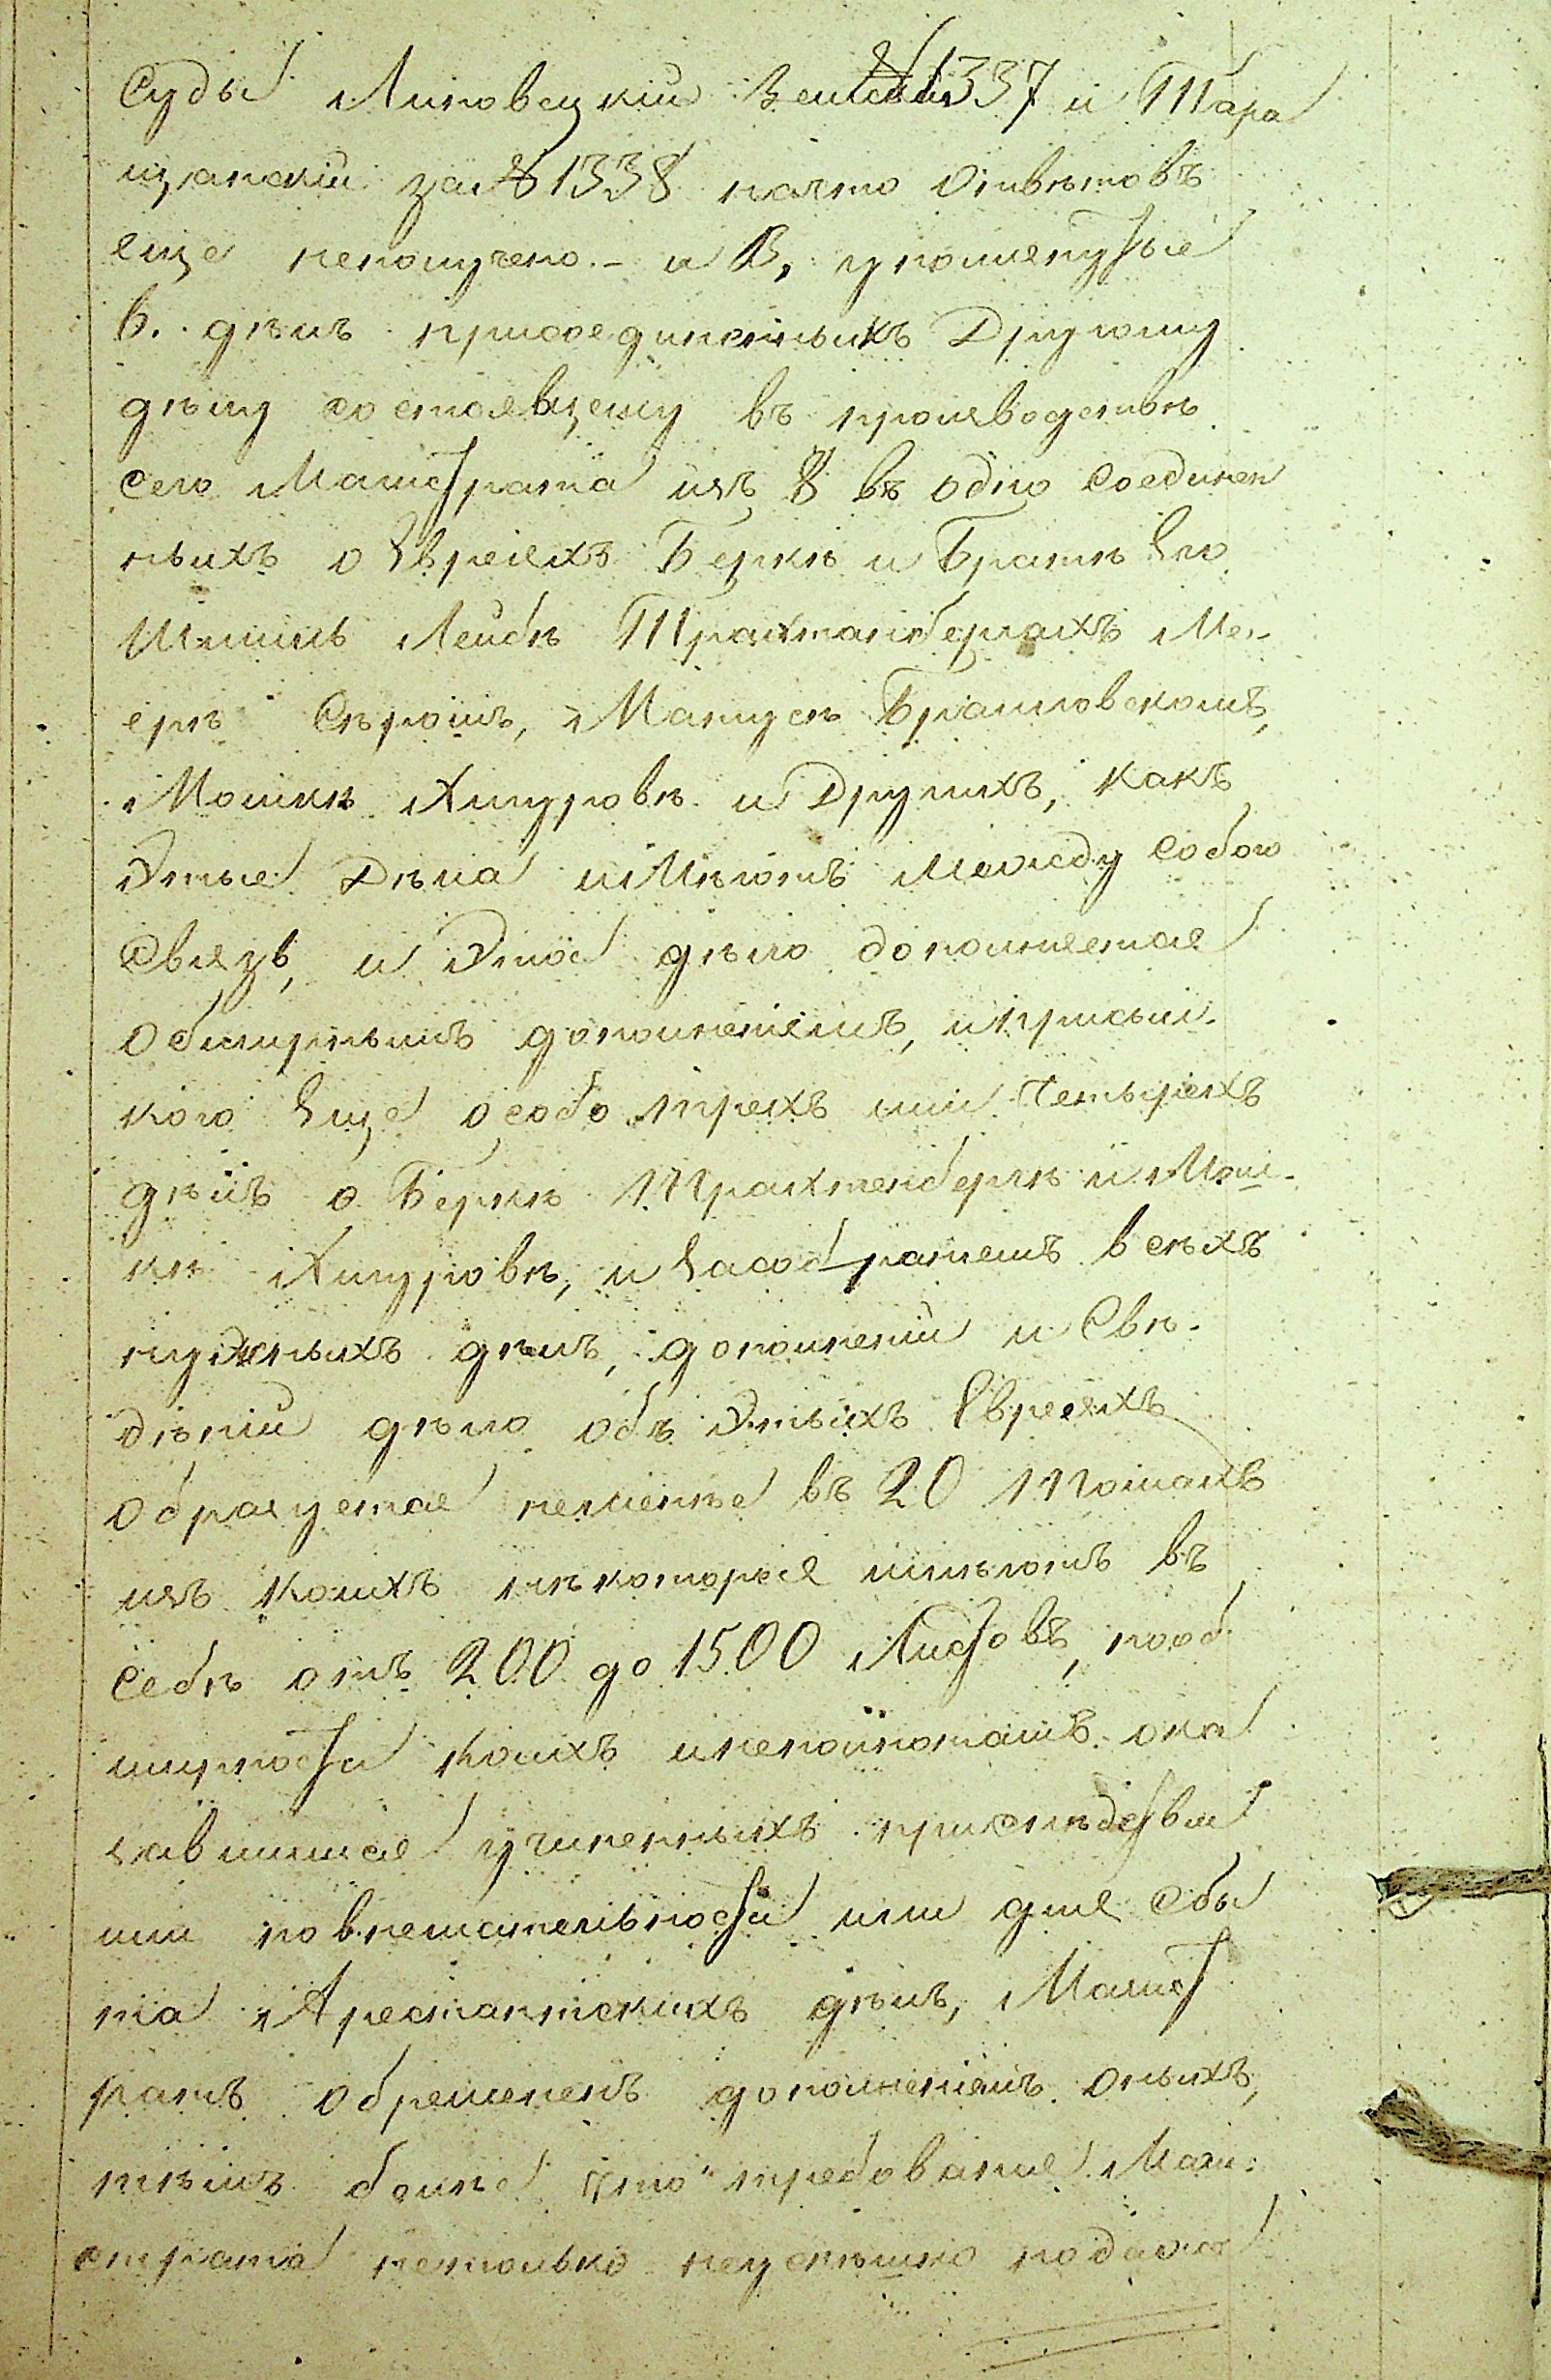 Суды Липовецкій Земскій №1337 и Тара
щанскій за №1338 начто Отвѣтовъ
еще неполучено.- и В, упомянутые
в. дѣлъ присоединенныхъ Другому
дѣлу состоявщему въ производствѣ
сего Магистрата изъ 8 въ одно соединен
ныхъ о Евреяхъ Беркѣ и Братѣ Его
Лейбѣ Трахтанбергахъ Ме-
ерѣ Сѣромъ, Матусѣ Брацловскомъ,
Мошкѣ Хмуровѣ и Другихъ, какъ
Этые Дѣла имѣютъ между собою
Связь, и Этое дѣло дополняется
Обширнымъ дополненіемъ, и присыл-
кою Еще особо трехъ или Четырехъ
дѣлъ о Беркѣ Трахтенбергѣ и Мош-
кѣ Хмуровѣ, и Засобраніемъ всѣхъ
нужныхъ дѣлъ, дополненій и Свѣ-
дѣній дѣло объ Этыхъ Евреяхъ
образуется неменѣе въ 20 Томахъ
изъ коихъ нѣкоторые имѣютъ въ
себѣ отъ 200 до 1500 Листовъ, пооб
ширности коихъ инеполнотамъ ока
завшимся учиненныхъ прислѣдствіи
или повнемательности или для Сбы
та Арестантскихъ дѣлъ, Магист
ратъ обремененъ дополненіемъ оныхъ,
тѣмъ болѣе Что требованія Маги-
страта нетолько неуспѣшно подаютъ